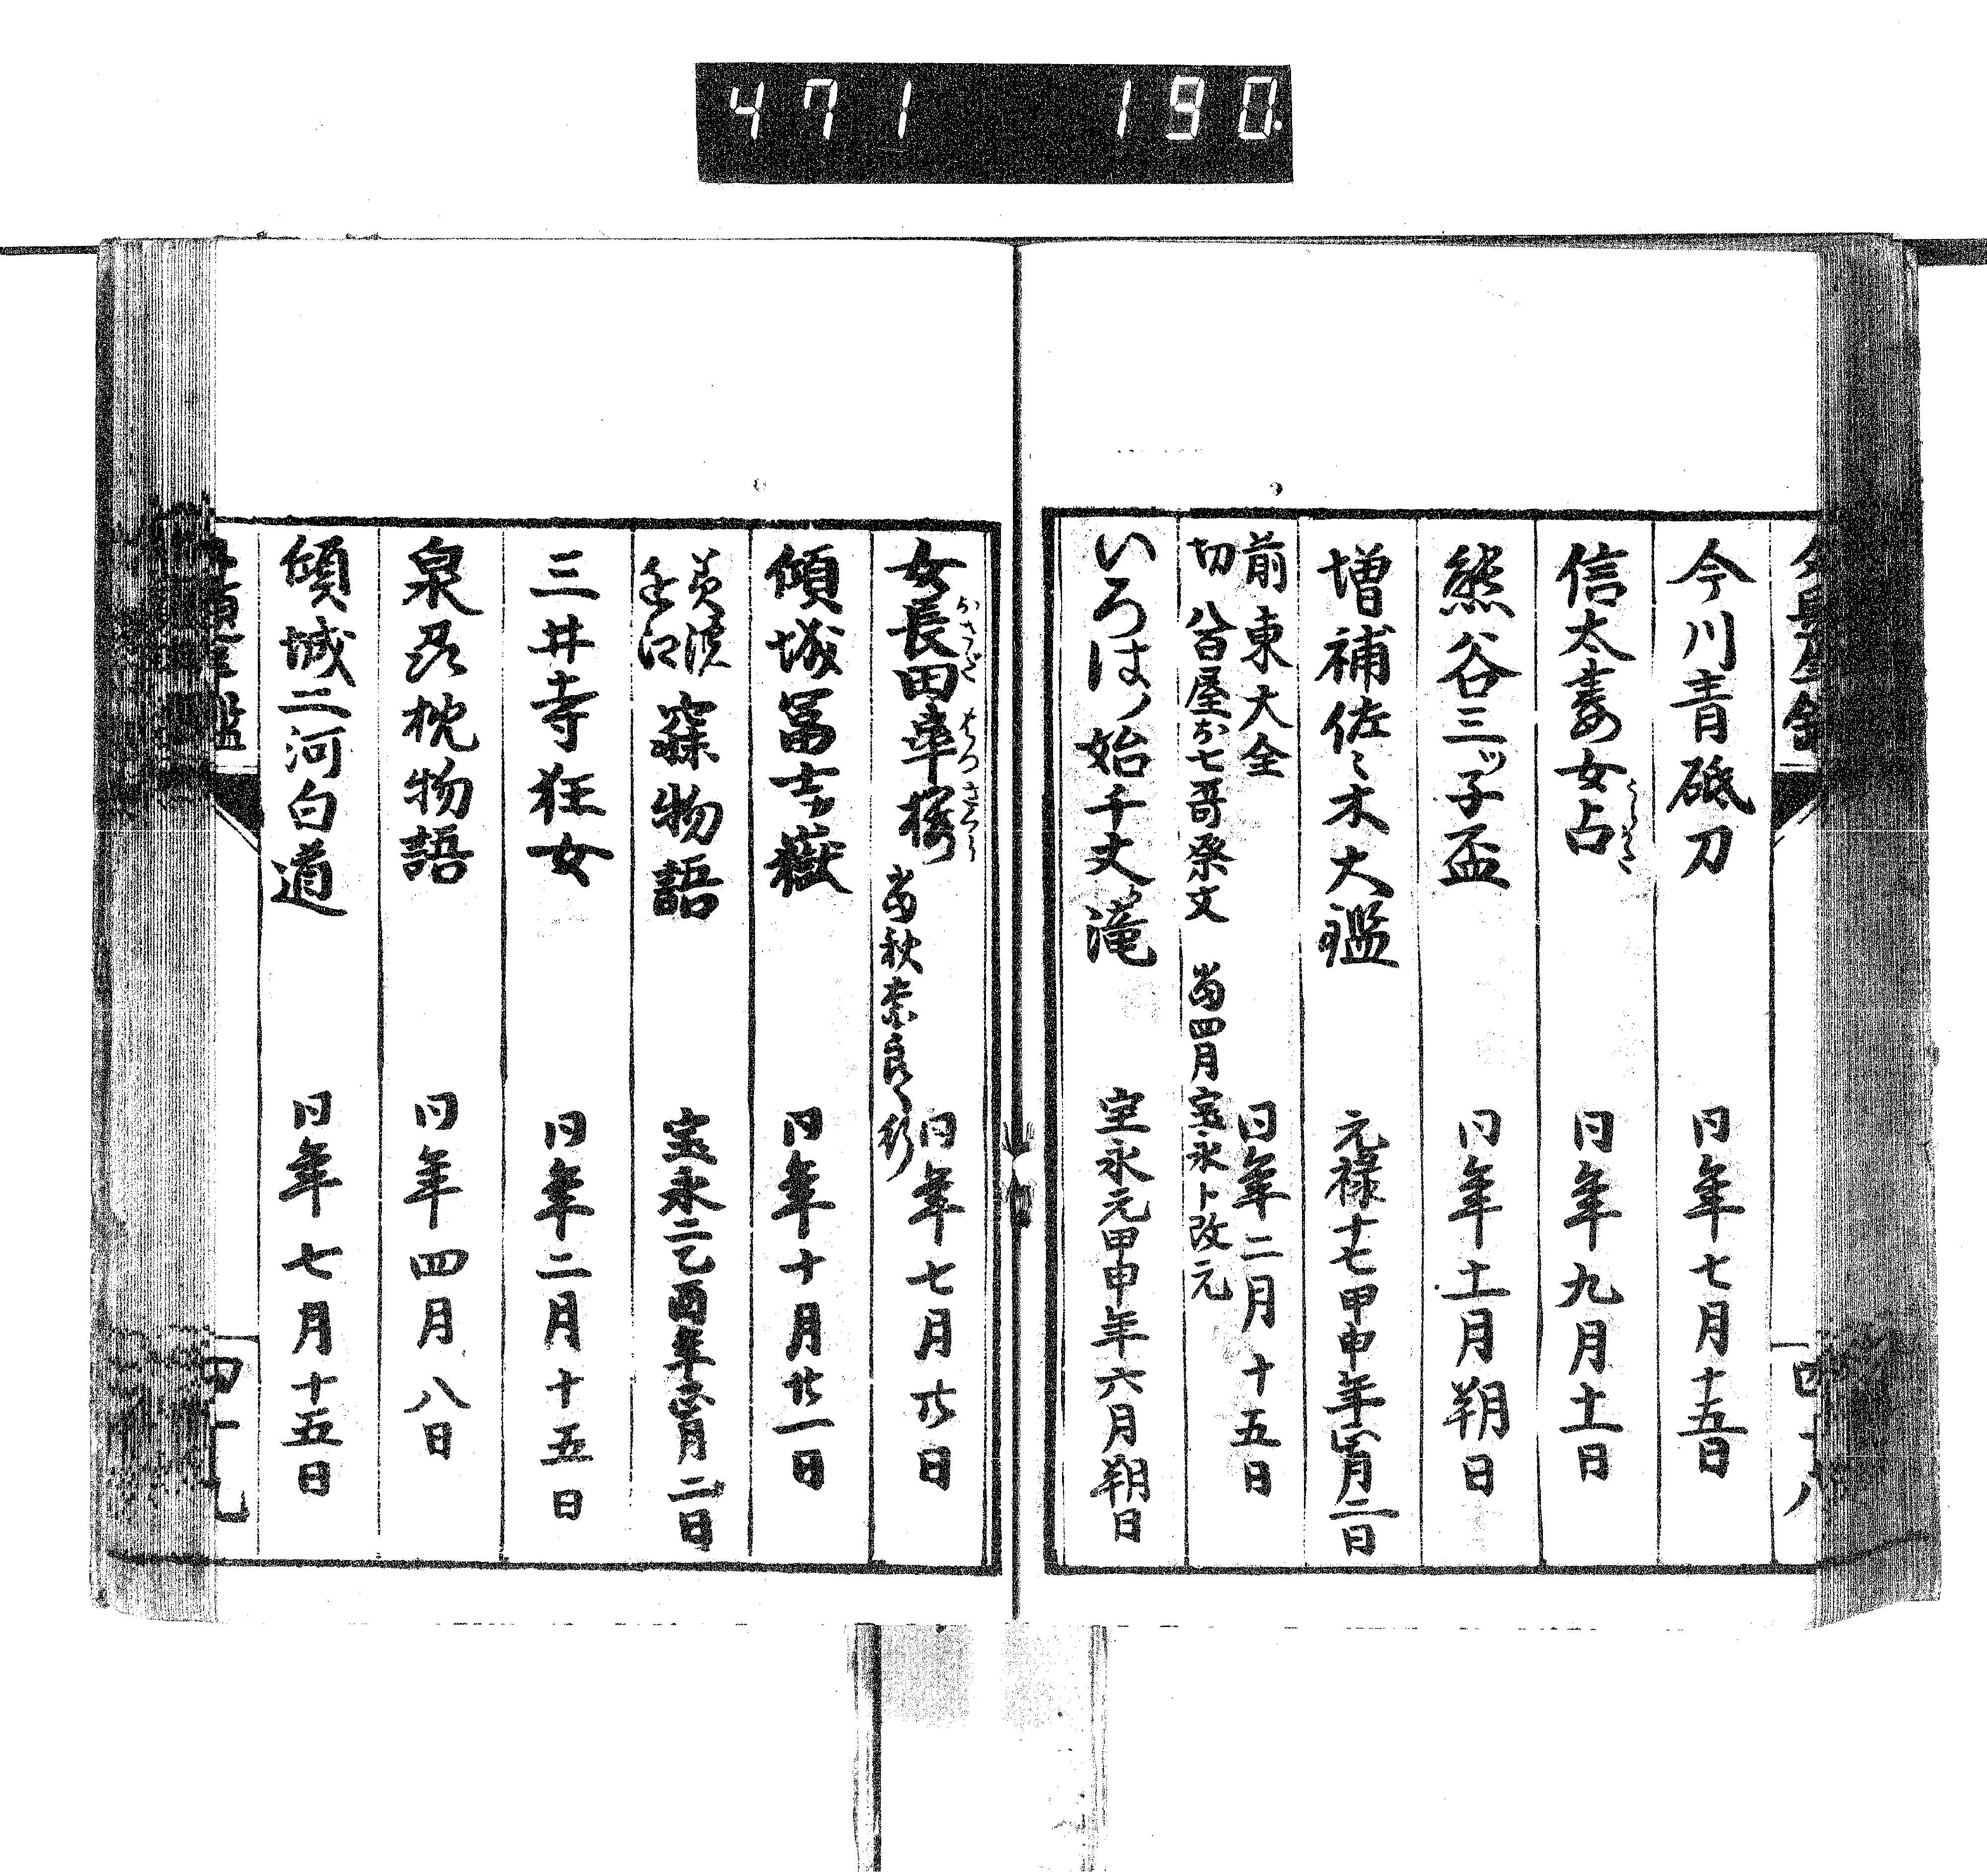 471 190.
今川青砥刀 同年七月十五日
信太妻女占 同年九月十一日
熊谷三ツ子盃 同年十一月朔日
増補佐々木大鑑 元禄十七甲申年正月二日
前 東大全 同年二月十五日
切 八百屋お七哥祭文 当四月宝永ト改元
いろはノ始千丈ヶ滝 宝永元甲申年六月朔日
女長田車櫻 当秋奈良ノ形 同年七月廿六日
おさだ
傾城冨士嶽 同年十月廿一日
物語 宝永二乙酉年正月二日
三井寺狂女 同年二月十五日
泉州枕物語 同年四月八日
傾城二河白道 同年七月十五日